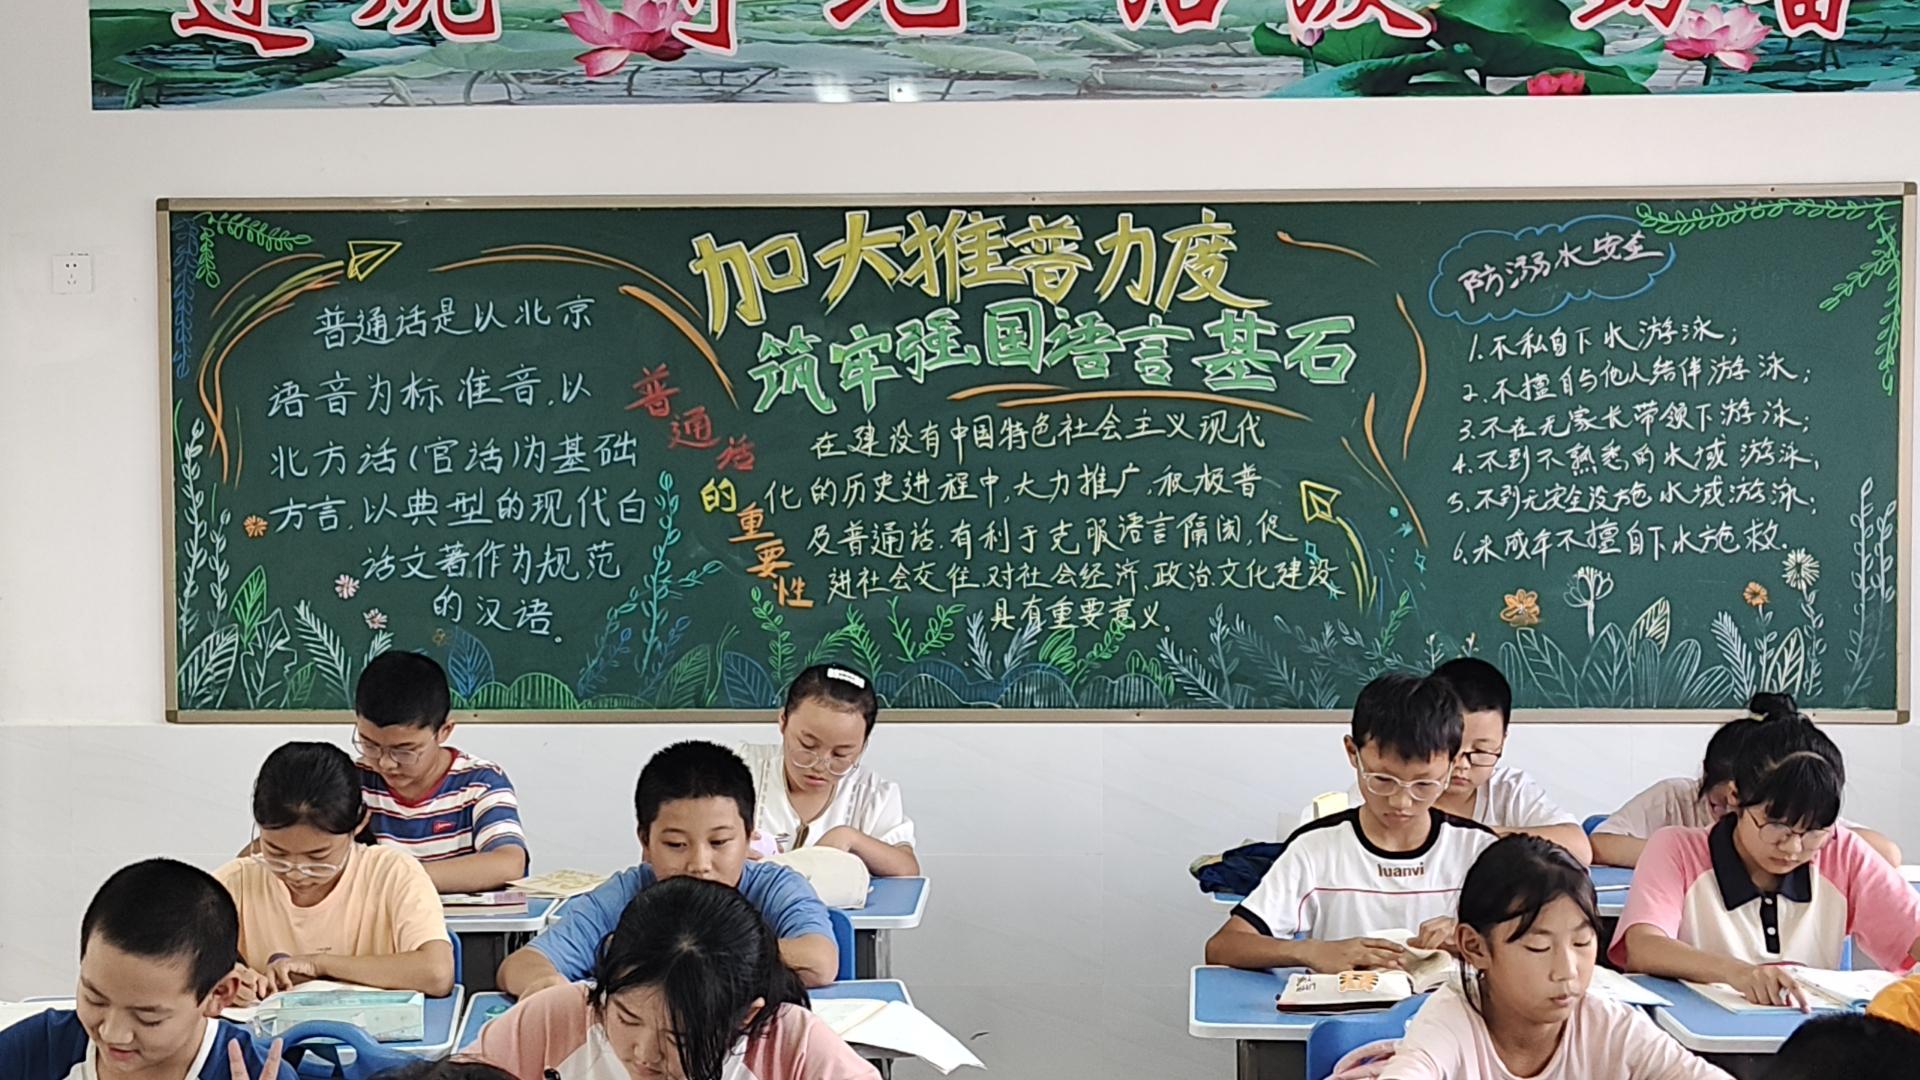 加大推普力度
筑牢强国语言基石
普通话是以北京
语音为标准音,以
北方话(官话)为基础
方言,以典型的现代白
话文著作为规范
的汉语。
普通话的重要性
在建设有中国特色社会主义现代
化的历史进程中,大力推广,积极普
及普通话,有利于克服语言隔阂,促
进社会交往,对社会经济,政治,文化建设
具有重要意义。
防溺水安全
1.不私自下水游泳;
2.不擅自与他人结伴游泳;
3.不在无家长带领下游泳;
4.不到不熟悉的水域游泳;
5.不到无安全设施水域游泳;
6.未成年不擅自下水施救.
luanvi